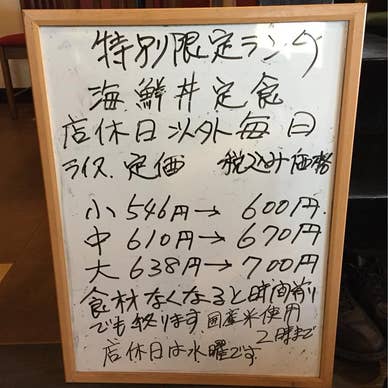 特別限定ランチ
海鮮丼定食
店休日以外毎日
ライス 定価 税込み価格
小 546円→ 600円
中 610円→ 670円
大 638円→ 700円
食材なくなると時間前り
でも終ります 国産米使用
2時まで
店休日は水曜です。